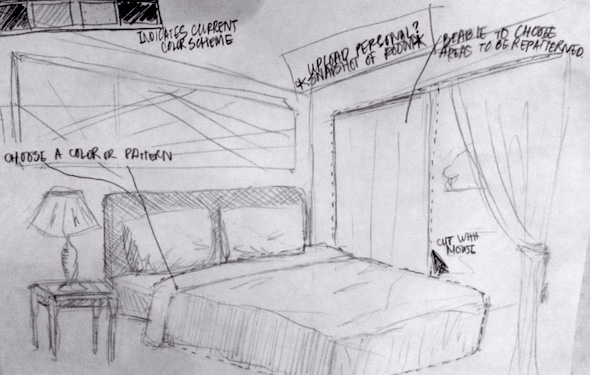 INDICATES CURRENT
COLOR SCHEME
UPLOAD PERSONAL?
*SNAPSHOT OF ROOM?*
BE ABLE TO CHOOSE
AREAS TO BE REPATTERNED.
CHOOSE A COLOR OR PATTERN
CUT WITH
MOUSE